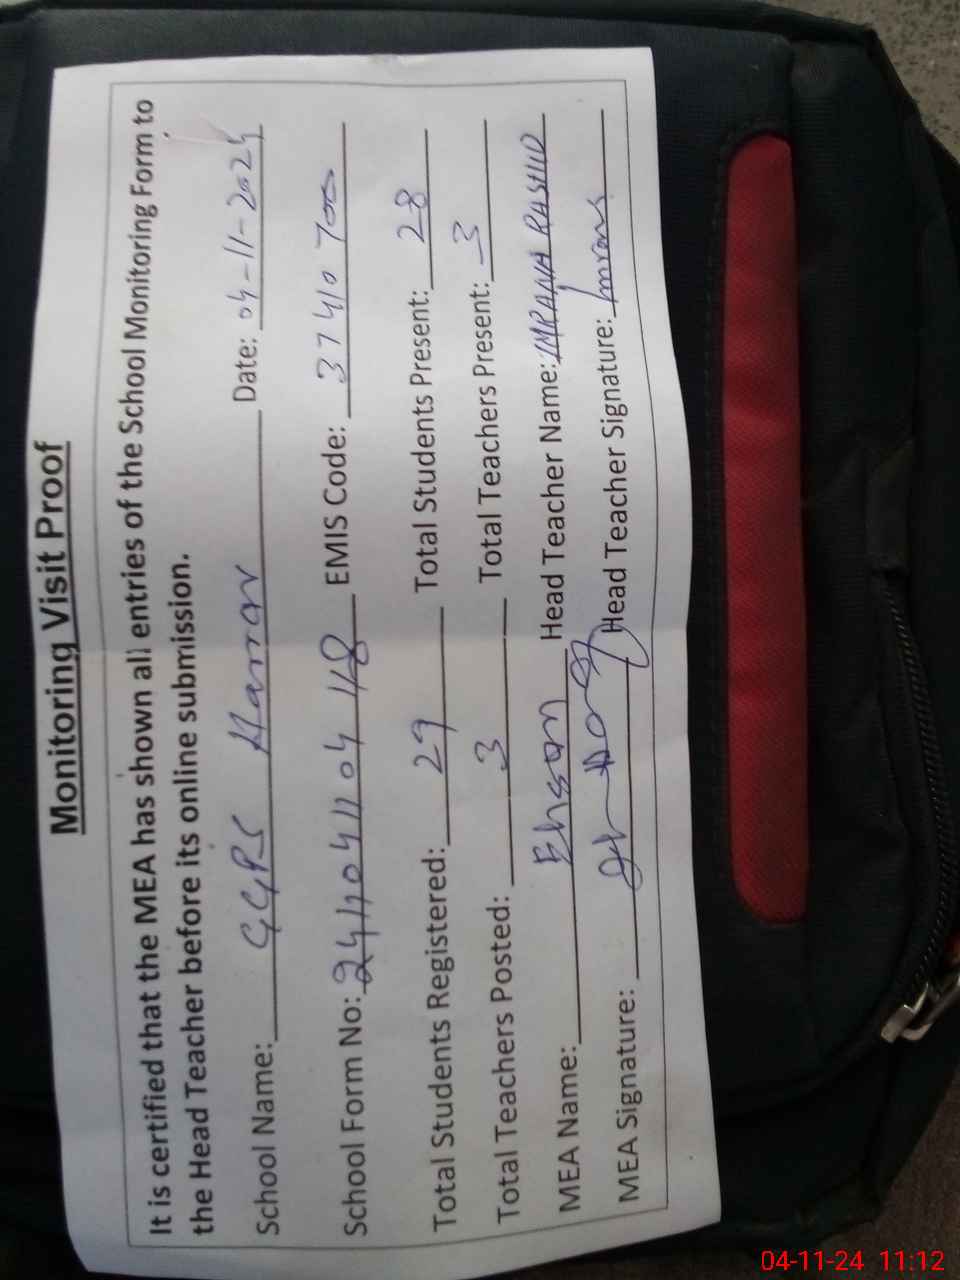 Monitoring Visit Proof
It is certified that the MEA has shown all entries of the School Monitoring Form to
the Head Teacher before its online submission.
School Name: GGPS Harrar Date: 04-11-2024
School Form No: EMIS Code: 37410700
Total Students Registered: 29 Total Students Present: 28
Total Teachers Posted: 3 Total Teachers Present: 3
MEA Name: Ehsan Head Teacher Name: IMRANA RASHID
MEA Signature: Head Teacher Signature: Imrana
04-11-24 11:12